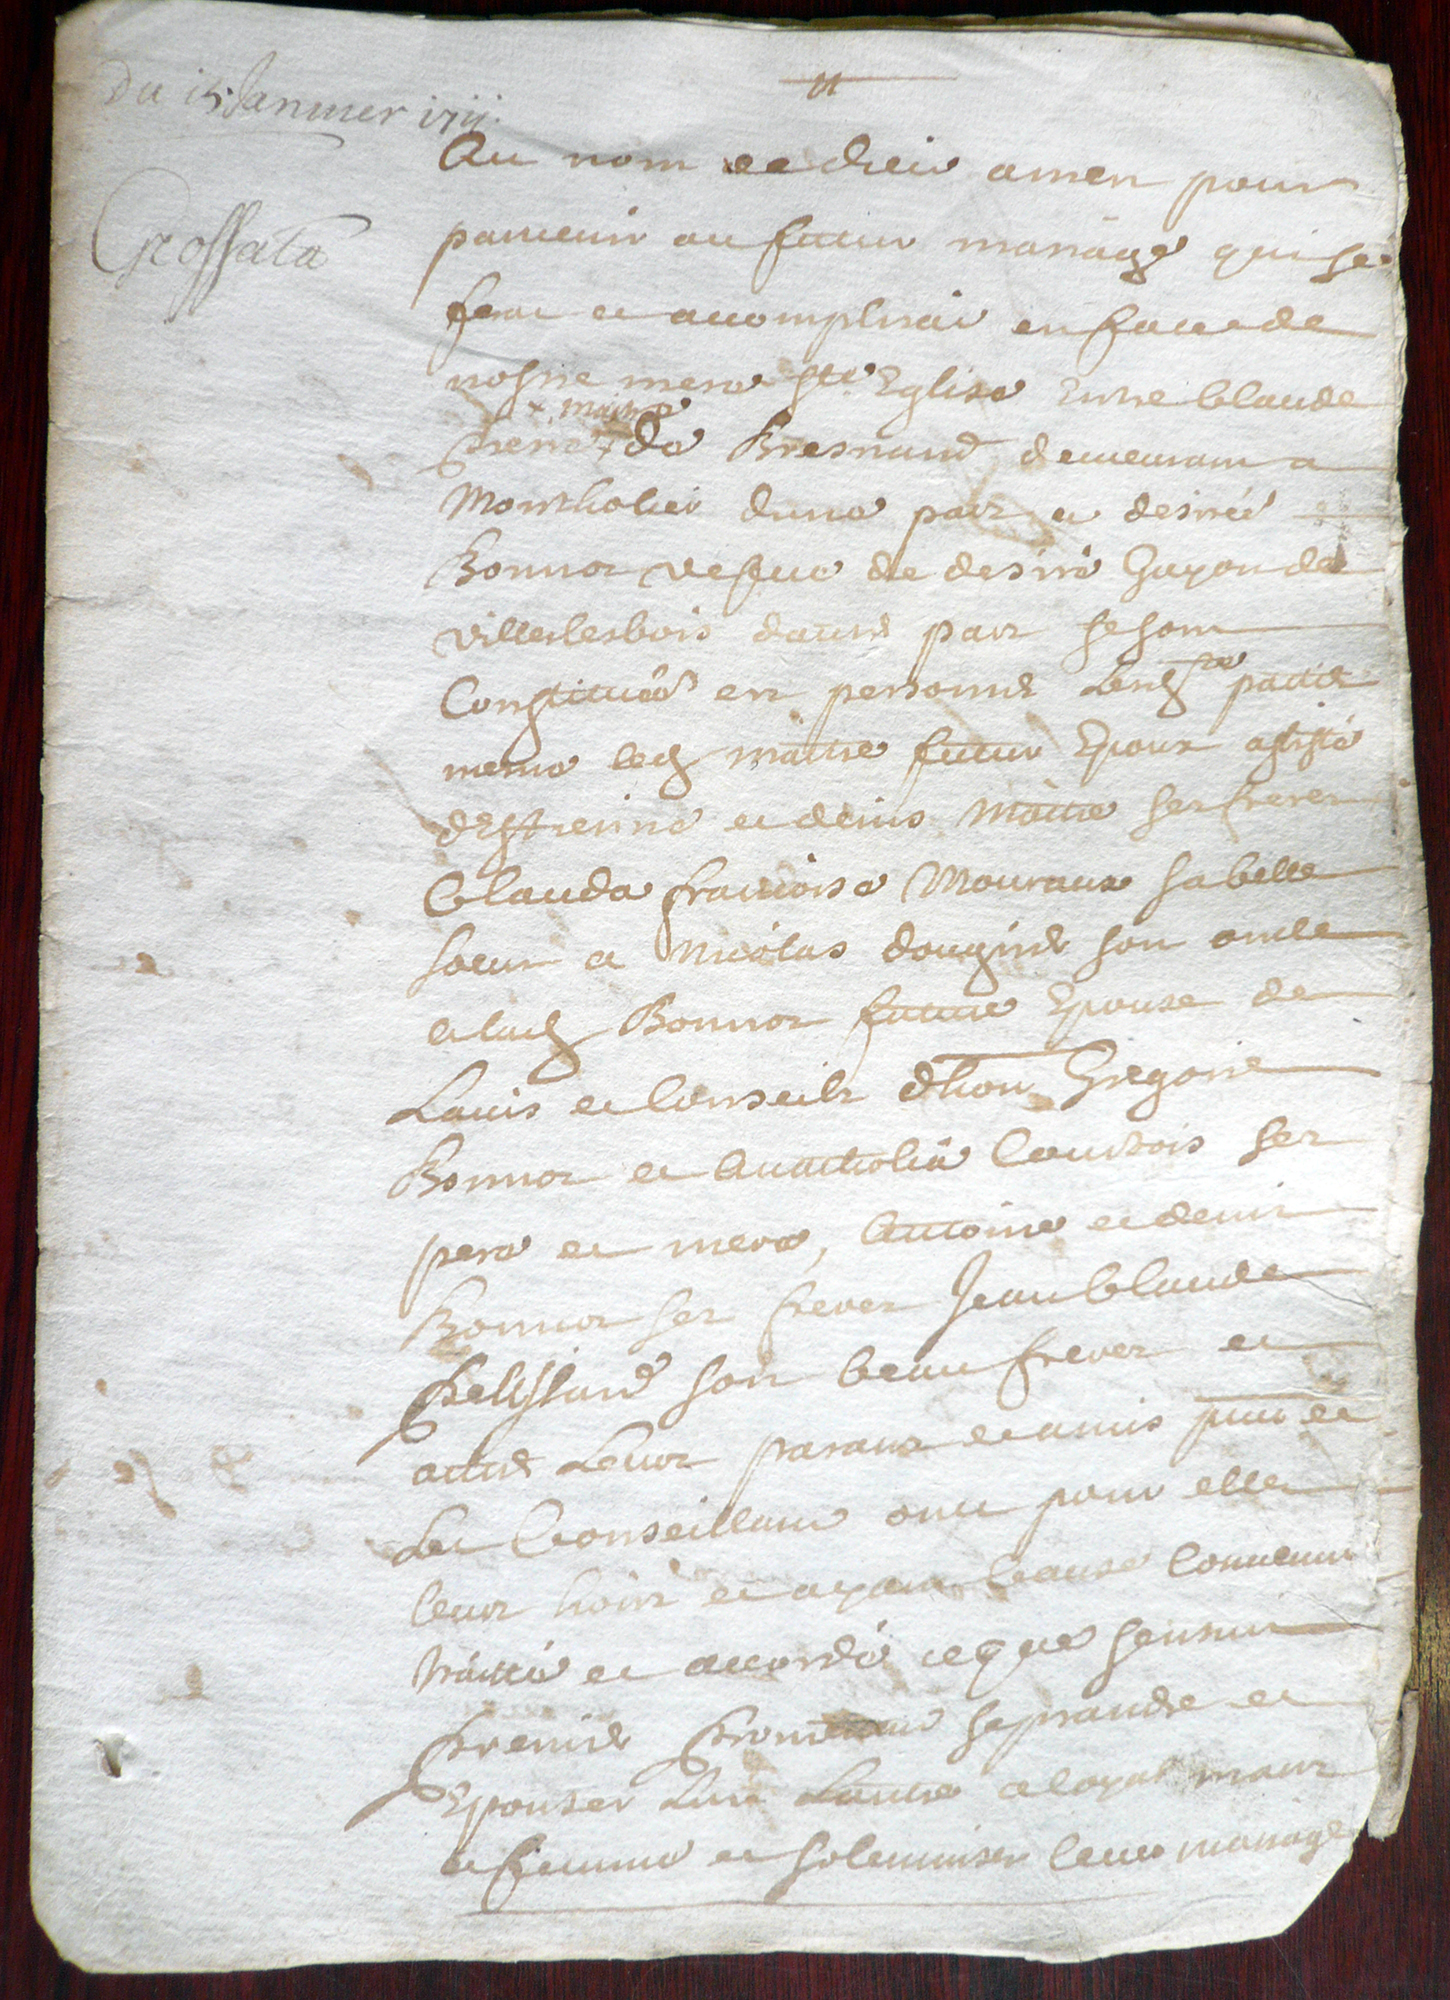 Du 15 Janvier 1711
Grossata
Au nom de dieu amen pour
parvenir au futur mariage qui se
fera et accomplira en face de
nostre mere Ste Eglise Entre Claude
+ maitre
pierre + de Bresnand demeurant a
Montholier dune part et desirée
Bonnot vefve de desiré Guyon de
villerlesbois dautre part se sont
Constitués en personnes Lesd partie
meme led maitre futur Epoux assisté
dEstienne et denis Maitre ses freres
Clauda francoise Mouraux sa belle
soeur et Nicolas son oncle
et lad Bonnot future Epouse de
Lavis et Conseils dhon Gregoire
Bonnot et Anatholia Courtois ses
pere et mere, Antoine et denis
Bonnot ses freres Jean Claude
Pelissard son beau frerer et
autre Leurs parans et amis pnt et
Les Conseillant ont pour elle
leurs hoirs et ayant Cause Convenu
traitté et accordé ce que sensuit
premier promettent se prandre et
Epouser Lun Lautre a loyal mary
et femme et solemniser leur mariage